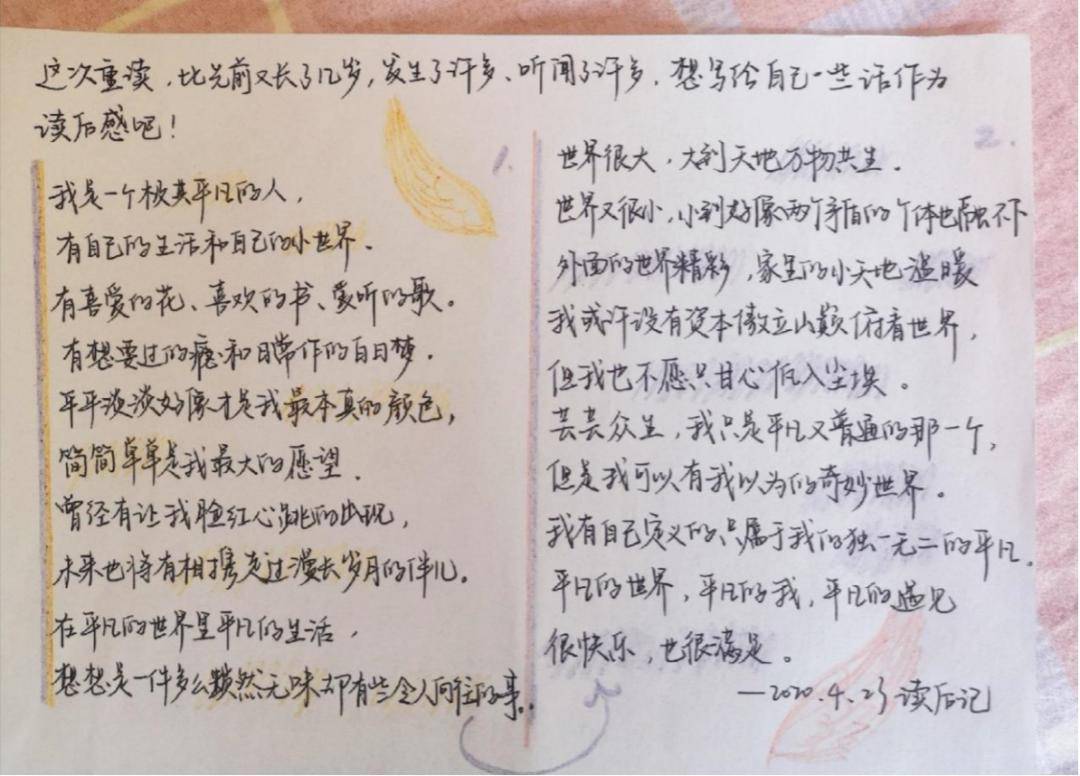 这次重读，比先前又长了几岁，发生了许多、听闻了许多，想写给自己一些话作为
读后感吧！
1.
我是一个极其平凡的人，
有自己的生活和自己的小世界。
有喜爱的花、喜欢的书、爱听的歌。
有想要过的瘾和日常作的白日梦。
平平淡淡好像才是我最本真的颜色，
简简单单是我最大的愿望。
曾经有让我脸红心跳的出现，
未来也将有相携走过漫长岁月的伴儿。
在平凡的世界里平凡的生活，
想想是一件多么黯然无味却有些令人向往的事。
2.
世界很大，大到天地万物共生。
世界又很小，小到好像两个矛盾的个体也融不下
外面的世界精彩，家里的小天地温暖
我或许没有资本傲立山巅俯看世界，
但我也不愿只甘心低入尘埃。
芸芸众生，我只是平凡又普通的那一个，
但是我可以有我以为的奇妙世界。
我有自己定义的只属于我的独一无二的平凡。
平凡的世界，平凡的我，平凡的遇见
很快乐，也很满足。
—2020.4.23 读后记